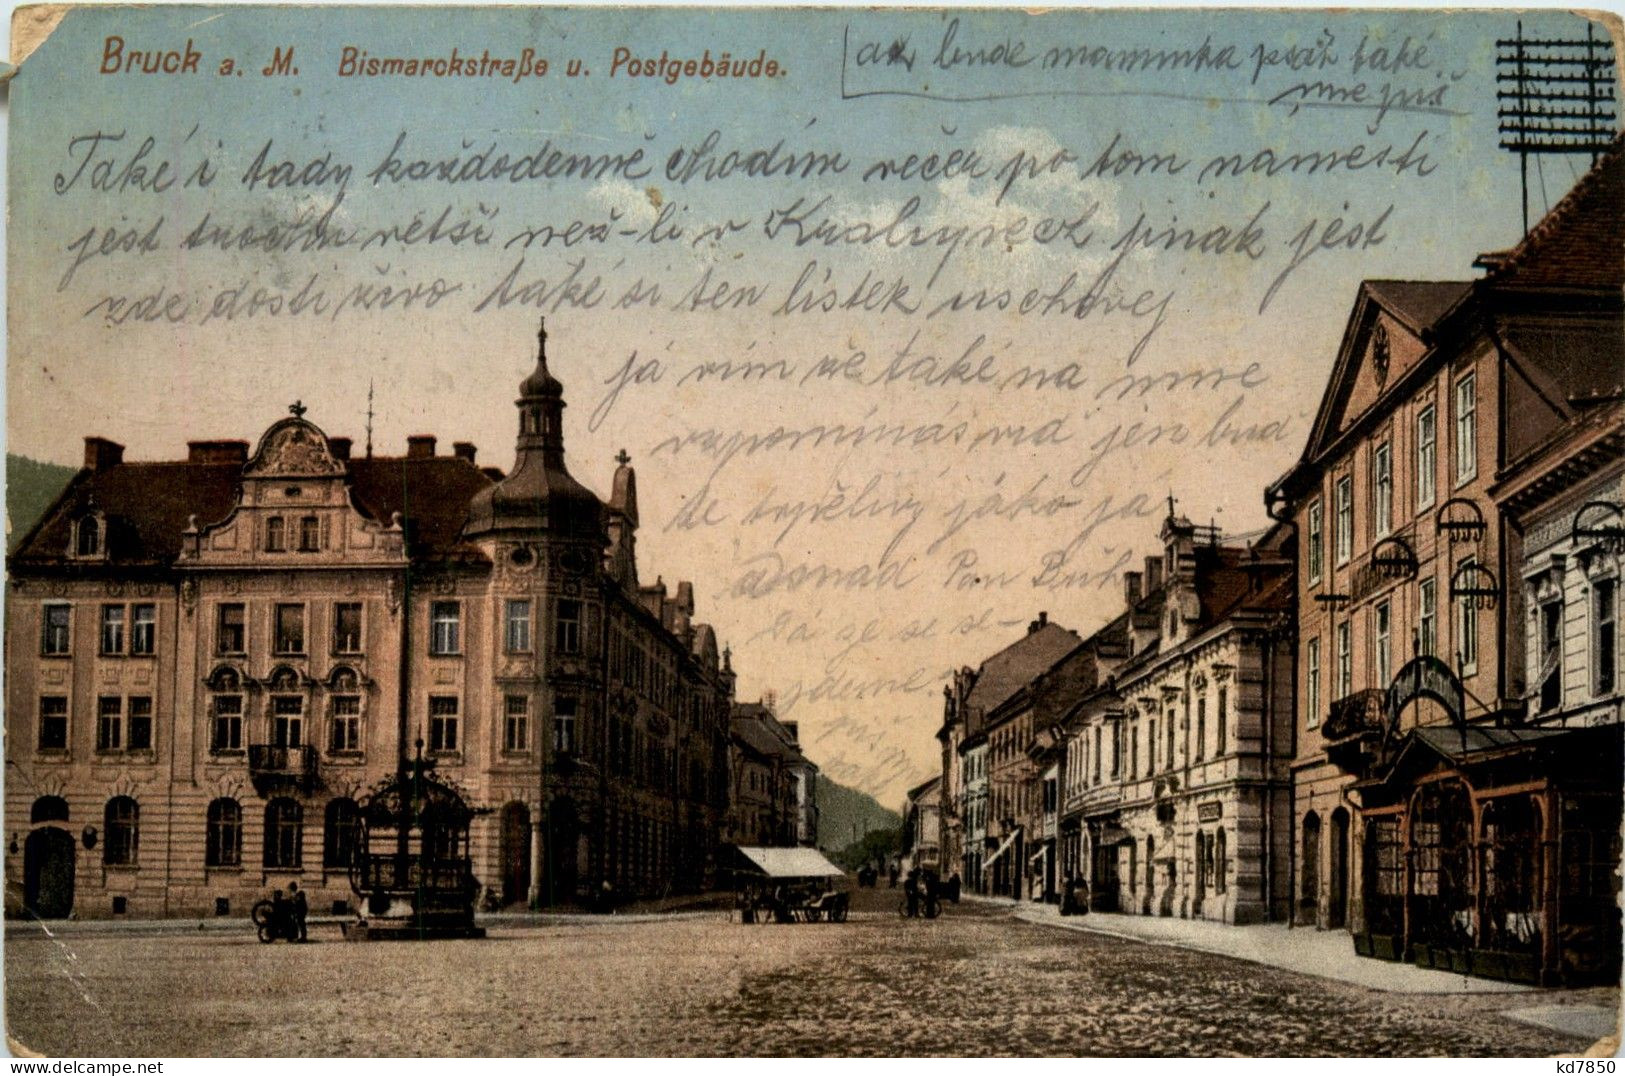 Bruck a. M. Bismarckstraße u. Postgebäude.
až bude maminka psát také
mne piš
Také i tady každodenně chodím večer po tom naměsti
jest trochu větši než-li v Kralupech jinak jest
zde dosti živo také si ten listek uschovej
já vím že také na mne
vzpomínáš viď jen buď
te trpělivý jáko já
Pan Bůh
dá že se se-
jdeme.
piš
kd7850